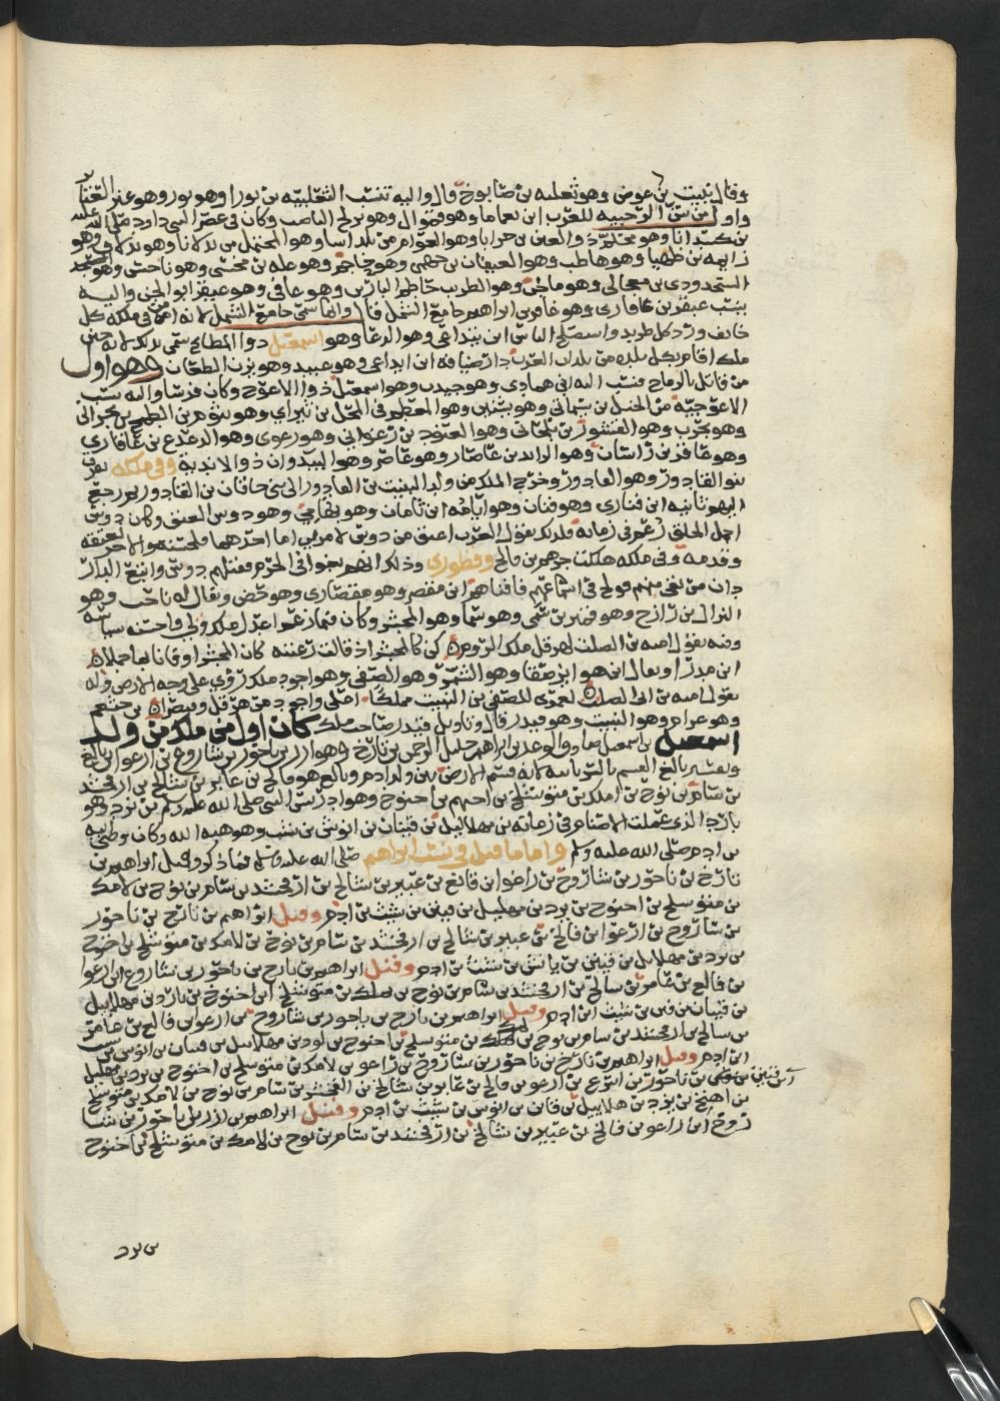 وقال نبيت بن عوض وهو ثعلبه بن صابوخ قال واليه تنسب الثعلبيه بن بورا وهو بور وهو عنر
واول من سن الرحبيه للعرب ابن نعماما وهو قموال وهو برلح الناصب وكان في عصر النبي داود صلى الله عليه
بن كسدانا وهو محلم ذو العين بن حرابا وهو العوام بن بلداسا وهو المحتمل بن بدلانا وهو بدلاف وهو
رايمه بن طهبا وهو هاطب وهو العيفان بن جهمي وهو جاحم وهو عله بن محشي وهو ناحش وهو
بن ماحي وهو الطريب خاطم النار بن وهو عافي وهو عيقر ابو الجن واليه
ينسب عبقر بن عافاري وهو عافر بن ابراهيم جامع الشمل قال وانما سمي جامع الشمل لانه امن في ملكه كل
خائف ورد كل طريد واستصلح الناس ابن بنداعي وهو الدعا وهو اسمعيل ذوا المطابخ سمي بذلك لانه حين
ملك اقام بكل بلده من بلدان العرب دار ضيافه ابن ابداعي وهو عبيد وهو يزن الطعان وهو اول
من قاتل بالرماح فنسب اليه ابن همادي وهو حيدب وهو اسمعيل ذوا الاعوج وكان فرسا واليه تنسب
الاعوجيه من الخيل بن يشماني وهو يشبين وهو المعظم في المحل بن تيراي وهو بتوم بن الطمح بن بحراني
وهو يحرب وهو القسور بن يلحاني وهو العنود بن رعواني وهو رعوي وهو الدعدع بن عاقاري
وهو عاقر بن راسان وهو الرايد بن عاصار وهو عاصر وهو البيدوان ذو الاندية وفي ملكه تفرق
بنوا القادور وهو القادور وخرج الملك من ولد النبيت بن القادور الى بني جاذان بن القادور ثم رجع
اليهم ثانيه ابن قناري وهو قنان وهو ايامه ابن ثامان وهو دوس العتق وكان دوس
اجمل الخلق زعم في زمانه فلذلك تقول العرب اعتق من دوس لامرين اما احدهما فلحسنه والاخر لعتقه
وقدمه وفي ملكه هلكت جرهم بن فالج وقطوري وذلك انهم بغوا في الحرم فقتلهم دوس واتبع
من بقي منهم فولج في اسماعهم فافناهم ابن مقصر وهو مقصاري وهو حصن ويقال له ناحب وهو
النزال بن زارح وهو قمير بن سمي وهو سما وهو المجشر وكان فيما زعموا اعدل ملك ولي واحسنه سياسه
وفيه يقول اميه بن الصلت لهرقل ملك الروم كن كالمجشر اذ قالت رعيته كان المجشر اوفانا بما حملا
ابن مهرا ويقال ابن هوا ابن صفا وهو السمر وهو الصفي وهو اجود ملك رؤي على وجه الارض وله
يقول اميه بن ابي الصلت لعمري للصفي بن النبيت مملكا اعلى واجود من هرقل وقيصرا بن جعثم
وهو عرام وهو النبيت وهو قيدر قال وتاويل قيدر صاحب ملك كان اول من ملك من ولد
اسمعيل بن اسمعيل صادق الوعد بن ابراهيم خليل الرحمن بن تارح وهو ازر بن ناحور بن شاروع بن ارعوا بن بالغ
وتفسير بالغ القسم بالسريانيه لانه قسم الارض بين ولد ادم وبالغ هو فالج بن عابر بن شالح بن ارفخشد
بن سام بن نوح بن املك بن متوشلخ بن اخنوخ وهو ادريس النبي صلى الله عليه وسلم بن يرد وهو
يارد الذي عملت الاصنام في زمانه بن مهلائيل بن قينان بن انوش بن شث وهو هبة الله وكان وصي ابيه
بن ادم صلى الله عليه وسلم واما ما قيل في نسب ابراهيم صلى الله عليه وسلم فيما ذكر وقيل ابراهيم بن
تارخ بن ناحور بن شاروح بن راغوا بن فالغ بن عيبر بن شالخ بن ارفخشد بن سام بن نوح بن لامك
بن متوشلح بن اخنوخ بن يرد بن مهليل بن قينن بن شيث بن ادم وقيل ابراهيم بن تارح بن ناحور
بن شاروح بن ارعوا بن فالخ بن عيبر بن شالخ بن ارفخشد بن سام بن نوح بن لامك بن متوشلخ بن اخنوخ
بن يرد بن مهلائل بن قينن بن يانش بن شيث بن ادم وقيل ابراهيم بن تارح بن ناحور بن شاروع بن ارعوا
بن فالع بن عامر بن سالح بن ارفخشد بن سام بن نوح بن ملك بن متوشلخ ابن اخنوخ بن يارد بن مهلاييل
بن قينان بن قس بن شيث ابن ادم وقيل ابراهيم بن تارح بن ناحور بن شاروح بن ارعوا بن فالغ بن عامر
بن سالح بن ارفخشد بن سام بن نوح بن ملك بن متوسلح بن اخنوح بن لود بن مهلاييل بن قينان بن انوش بن شيث
ابن ادم وقيل ابراهيم بن تارخ بن ناحور بن ساروح بن راعو بن لامك بن متوسلح بن اخنوح بن يرد بن مهليل
بن ناحور بن اسرع بن ارعو بن فالخ بن عابر بن شالخ بن الفخشد بن سام بن نوح بن لامك بن متوسلخ
بن اهنخ بن يرد بن هلاييل بن قاين بن انوس بن شيث بن ادم وقيل ابراهيم بن ازر بن ناحور بن شا
روخ ابن راعو بن فالخ بن عيبر بن شالخ بن ارفخشد بن سام بن نوح بن لامك بن متوشلخ بن اخنوخ
بن يرد